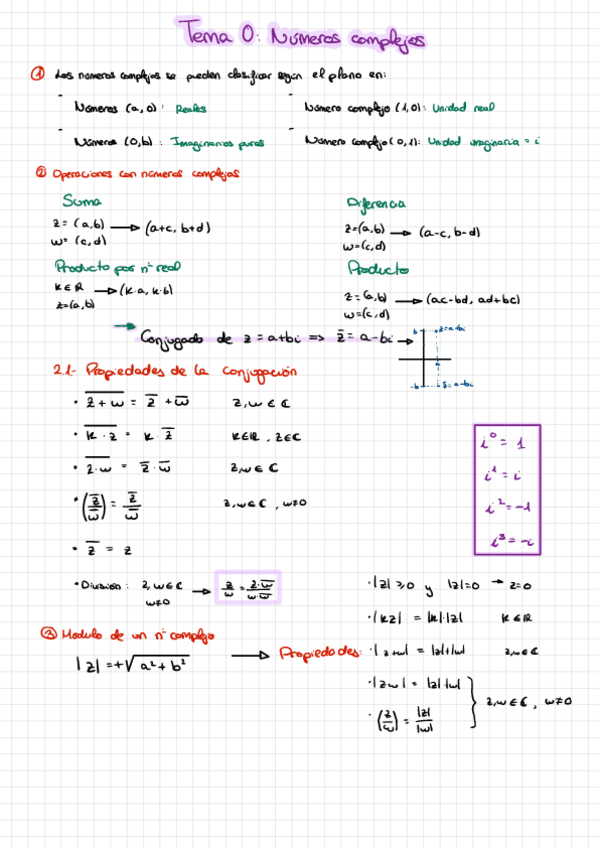 Tema 0: Números complejos
① Los números complejos se pueden clasificar según el plano en:
- Números (a,0): Reales
- Número complejo (1,0): Unidad real
- Números (0,b): Imaginarios puros
- Número complejo (0,1): Unidad imaginaria = i
② Operaciones con números complejos
Suma
z = (a,b) → (a+c, b+d)
w = (c,d)
Diferencia
z = (a,b) → (a-c, b-d)
w = (c,d)
Producto por nº real
k ∈ ℝ → (k·a, k·b)
z = (a,b)
Producto
z = (a,b) → (ac-bd, ad+bc)
w = (c,d)
→ Conjugado de z = a+bi ⇒ z̅ = a-bi →
b z=a+bi
-b z̅=a-bi
2.1.- Propiedades de la conjugación
· \overline{z+w} = z̅ + w̅ z,w ∈ ℂ
· \overline{k·z} = k·z̅ k∈ℝ, z∈ℂ
· \overline{z·w} = z̅·w̅ z,w ∈ ℂ
· (z̅/w) = z̅/w̅ z,w ∈ ℂ, w≠0
· z̅ = z
· División: z,w ∈ ℂ → z/w = z·w̅/w·w̅
w≠0
i⁰ = 1
i¹ = i
i² = -1
i³ = -i
③ Módulo de un nº complejo
|z| = +√a²+b² → Propiedades:
· |z| ≥ 0 y |z|=0 → z=0
· |kz| = |k|·|z| k∈ℝ
· |z+w| = |z|+|w| z,w ∈ ℂ
· |zw| = |z|·|w|
· (z/w) = |z|/|w|
} z,w ∈ ℂ, w≠0